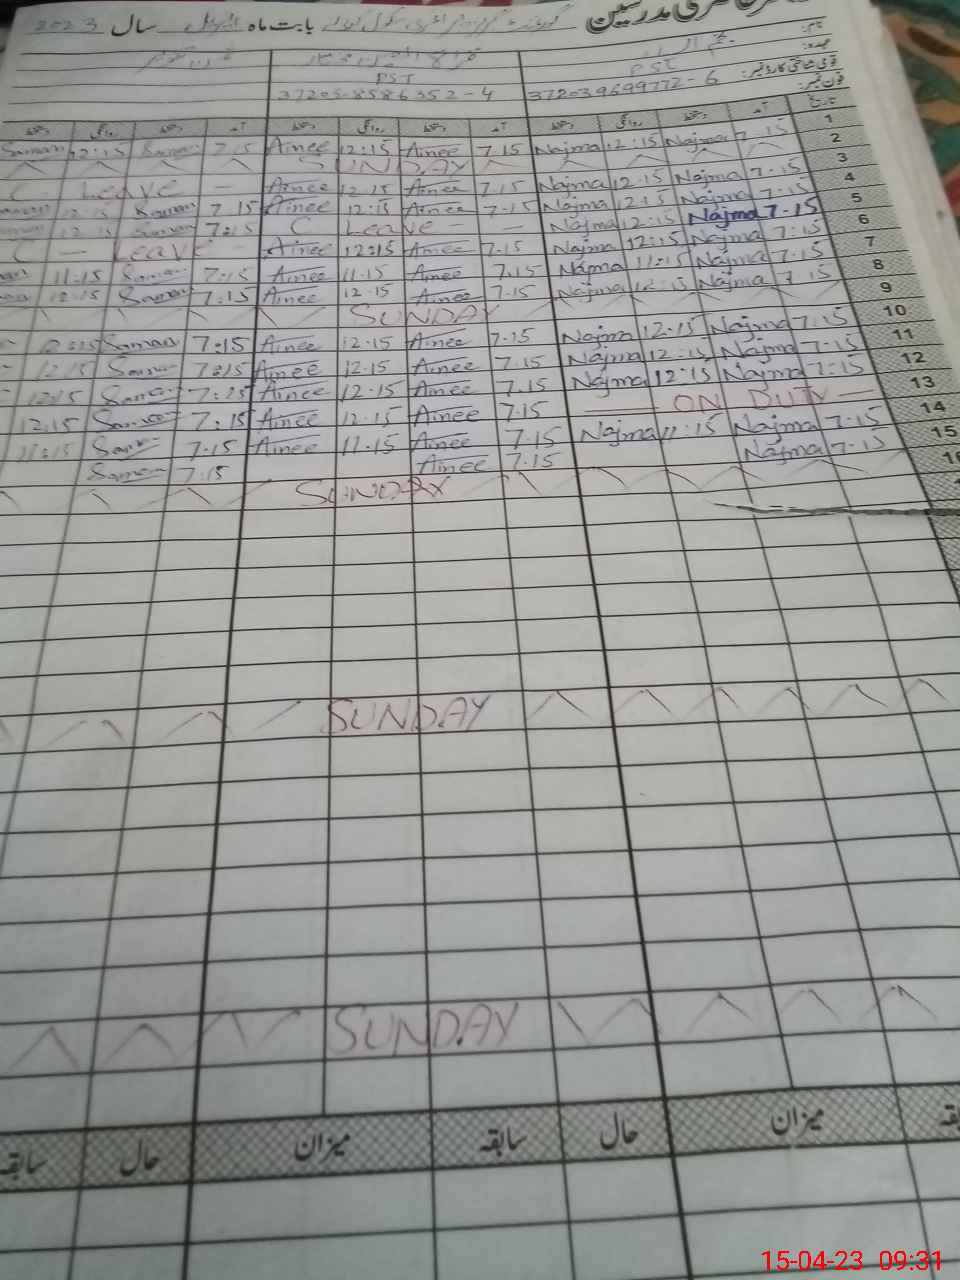 مدرسین گورنمنٹ بابت ماہ اپریل سال 2023
نام:
عہدہ: PST PST
قومی شناختی کارڈ نمبر: 37203-8586352-4
فون نمبر:
دستخط روانگی دستخط آمد دستخط روانگی دستخط آمد دستخط روانگی دستخط آمد تاریخ
Saman 12:15 Saman 7.15 Ainee 12:15 Ainee 7.15 Najma 12:15 Najma 7.15 1
SUNDAY 2
C Leave - Ainee 12.15 Ainee 7.15 Najma 12.15 Najma 7.15 3
12.15 Saman 7.15 Ainee 12:15 Ainee 7.15 Najma 12:15 Najma 7.15 4
12.15 Saman 7:15 C Leave - Najma 12:15 Najma 7.15 5
C - Leave - Ainee 12:15 Ainee 7.15 Najma 12:15 Najma 7:15 6
11.15 Saman 7:15 Ainee 11.15 Ainee 7.15 Najma 11:15 Najma 7.15 7
12.15 Saman 7.15 Ainee 12.15 Ainee 7.15 Najma 12.15 Najma 7.15 8
SUNDAY 9
12:15 Saman 7:15 Ainee 12.15 Ainee 7.15 Najma 12.15 Najma 7:15 10
12.15 Saman 7:15 Ainee 12.15 Ainee 7.15 Najma 12:15 Najma 7.15 11
12:15 Saman 7:15 Ainee 12.15 Ainee 7.15 Najma 12:15 Najma 7:15 12
12.15 Saman 7:15 Ainee 12.15 Ainee 7.15 ON DUTY 13
11:15 Saman 7.15 Ainee 11.15 Ainee 7.15 Najma 11:15 Najma 7.15 14
Saman 7.15 Ainee 7.15 Najma 7.15 15
SUNDAY
SUNDAY
SUNDAY
سابقہ حال میزان سابقہ حال میزان
15-04-23 09:31